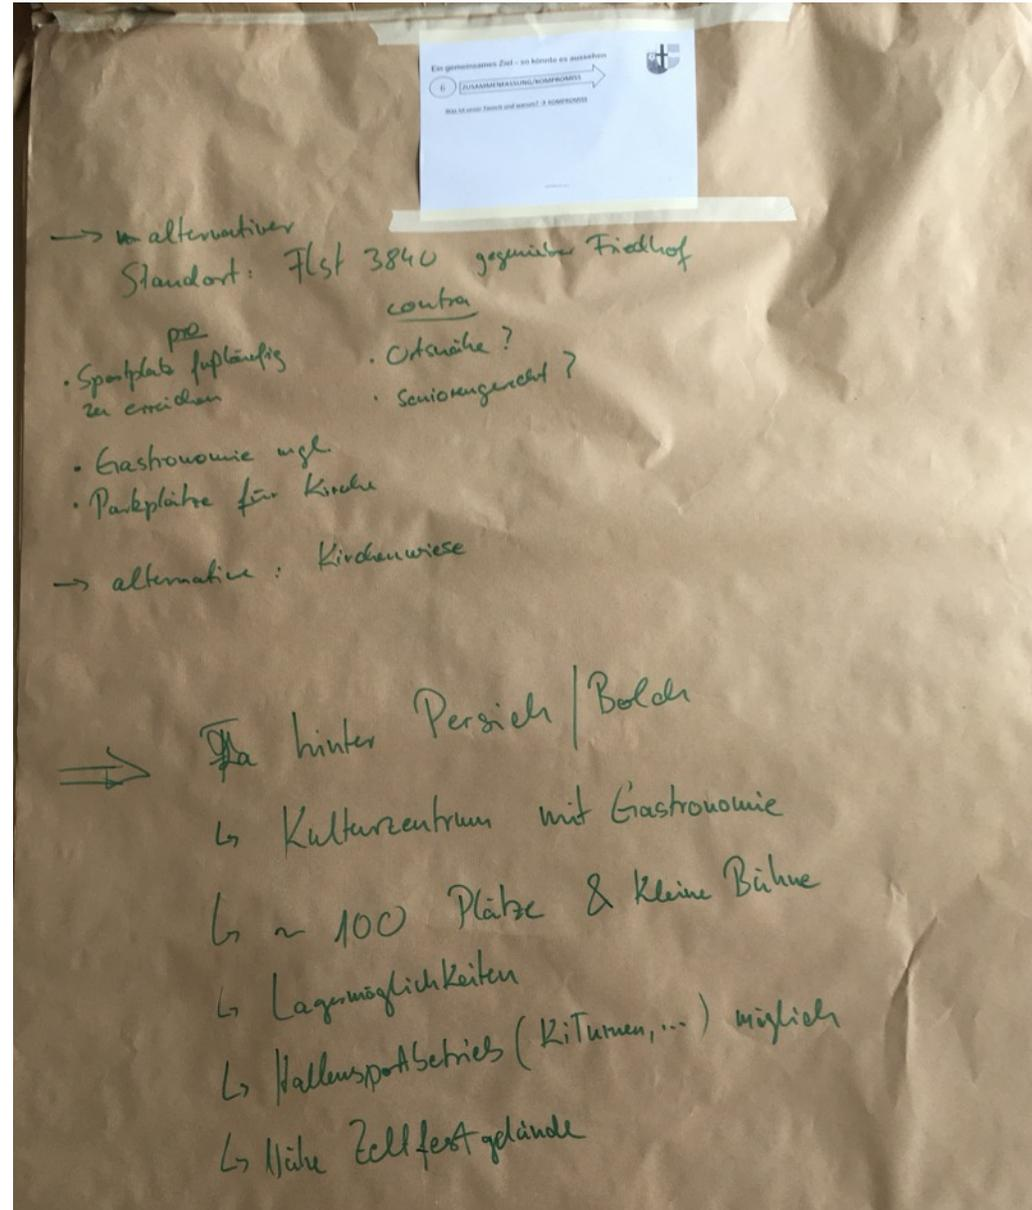 Ein gemeinsames Ziel – so könnte es aussehen
6 ZUSAMMENFASSUNG/KOMPROMISS
Was ist unser Favorit und warum? → KOMPROMISS
→ alternativer
Standort: Flst 3840 gegenüber Friedhof
pro
contra
• Sportplatz fußläufig
zu erreichen
• Ortsnähe ?
• Seniorengerecht ?
• Gastronomie mgl.
• Parkplätze für Kirche
→ alternative : Kirchenwiese
⇒ hinter Persich / Bolch
↳ Kulturzentrum mit Gastronomie
↳ ~ 100 Plätze & kleine Bühne
↳ Lagermöglichkeiten
↳ Hallensportbetrieb (KiTurnen, ...) möglich
↳ Nähe Zeltfestgelände